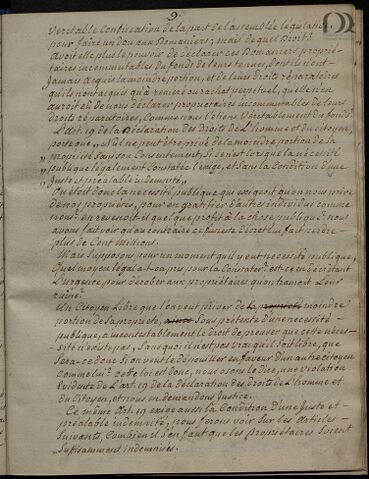 9.
Veritable Confiscation de la part de l'assemblée législative
pour faire un don aux Domaniers; mais de quel Droit?
avoit elle plus le pouvoir de déclarer ces Domaniers proprié-
taires incommutables du fonds de leurs tenues, dont ils n'ont
Jamais acquis la moindre portion, et de leurs Droits réparatoires
qu'ils n'ont acquis qu'à reméré ou rachat perpetuel, qu'elle n'en
auroit eu de nous déclarer proprietaires incommutables de leurs
droits réparatoires, comme nous l'étions veritablement du fonds.
L'art. 19 de la Déclaration des Droits de L'homme et du citoyen,
porte que, nul ne peut être privé de la moindre portion de la
propriété sans son Consentement, si ce n'est lorsque la nécessité
publique légalement Constatée l'exige, et sans la Condition d'une
Juste et préalable indemnité,,
Ou étoit donc la necessité publique qui exigeoit qu'on nous prive
de nos propriétés, pour en gratifier d'autres individus comme
nous? en revenoit-il quelque profit à la chose publique? nous
avons fait voir qu'au contraire ce funeste Décret lui fait perdre
plus de Cent Millions.
Mais Supposons pour un moment qu'il y eut necessité publique,
Quel moyen légal a-t-on pris pour la Constater? est-ce en décrétant
L'urgence pour décober aux propriétaires quont ament Leur
ruine?
Un Citoyen Libre que l'on veut priver de la propriete moindre
portion de sa propriété, Sous prétexte d'une necessité
publique, a incontestablement le droit de prouver que cette néces-
sité n'existe pas, Sans quoi il n'est pas vrai qu'il soit libre, que
Sera-ce donc Si on veut le dépouiller en faveur d'un autre citoyen
Comme lui? cette loi est donc, nous osons le dire, une violation
Evidente de L'art. 19 de la déclaration des droits de L'homme et
du Citoyen, et nous en demandons Justice.
Ce même Art. 19 exige aussi la Condition d'une Juste et
préalable indemnité, nous ferons voir Sur les articles
Suivants, Combien il s'en faut que les propriétaires Soient
Suffisamment indemnisés.